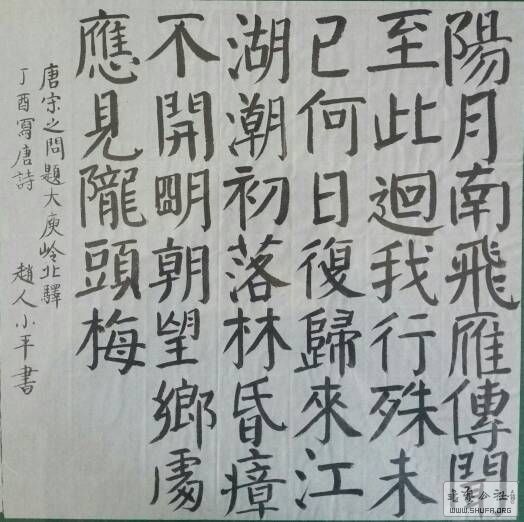 陽月南飛雁傳聞
至此迴我行殊未
已何日復歸來江
湖潮初落林昏瘴
不開朙朝望鄉處
應見隴頭梅
唐宋之問題大庾岭北驛
丁酉寫唐詩 趙人小平書
书家公社
WWW.SHUFA.ORG